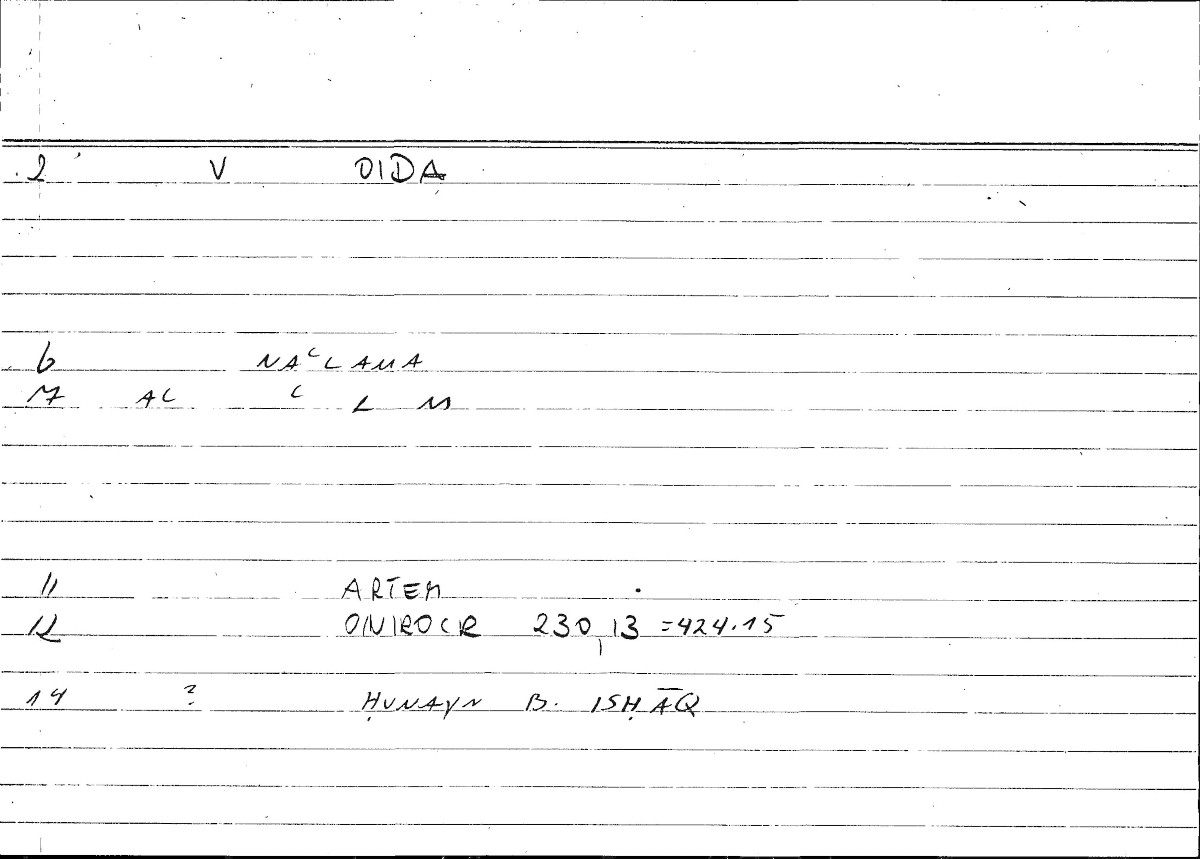 2 V OIDA
6 NAʿLAMA
7 AC C L M
11 ARTEM
12 ONIROCR 230,13 =424.15
14 ? ḤUNAYN B. ISḤĀQ